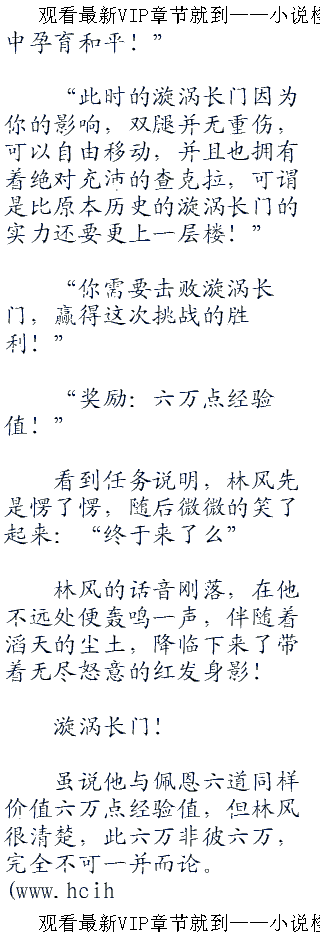 观看最新VIP章节就到——小说检
中孕育和平！”
“此时的漩涡长门因为
你的影响，双腿并无重伤，
可以自由移动，并且也拥有
着绝对充沛的查克拉，可谓
是比原本历史的漩涡长门的
实力还要更上一层楼！”
“你需要击败漩涡长
门，赢得这次挑战的胜
利！”
“奖励：六万点经验
值！”
看到任务说明，林风先
是愣了愣，随后微微的笑了
起来：“终于来了么”
林风的话音刚落，在他
不远处便轰鸣一声，伴随着
滔天的尘土，降临下来了带
着无尽怒意的红发身影！
漩涡长门！
虽说他与佩恩六道同样
价值六万点经验值，但林风
很清楚，此六万非彼六万，
完全不可一并而论。
(www.hcih
观看最新VIP章节就到——小说检